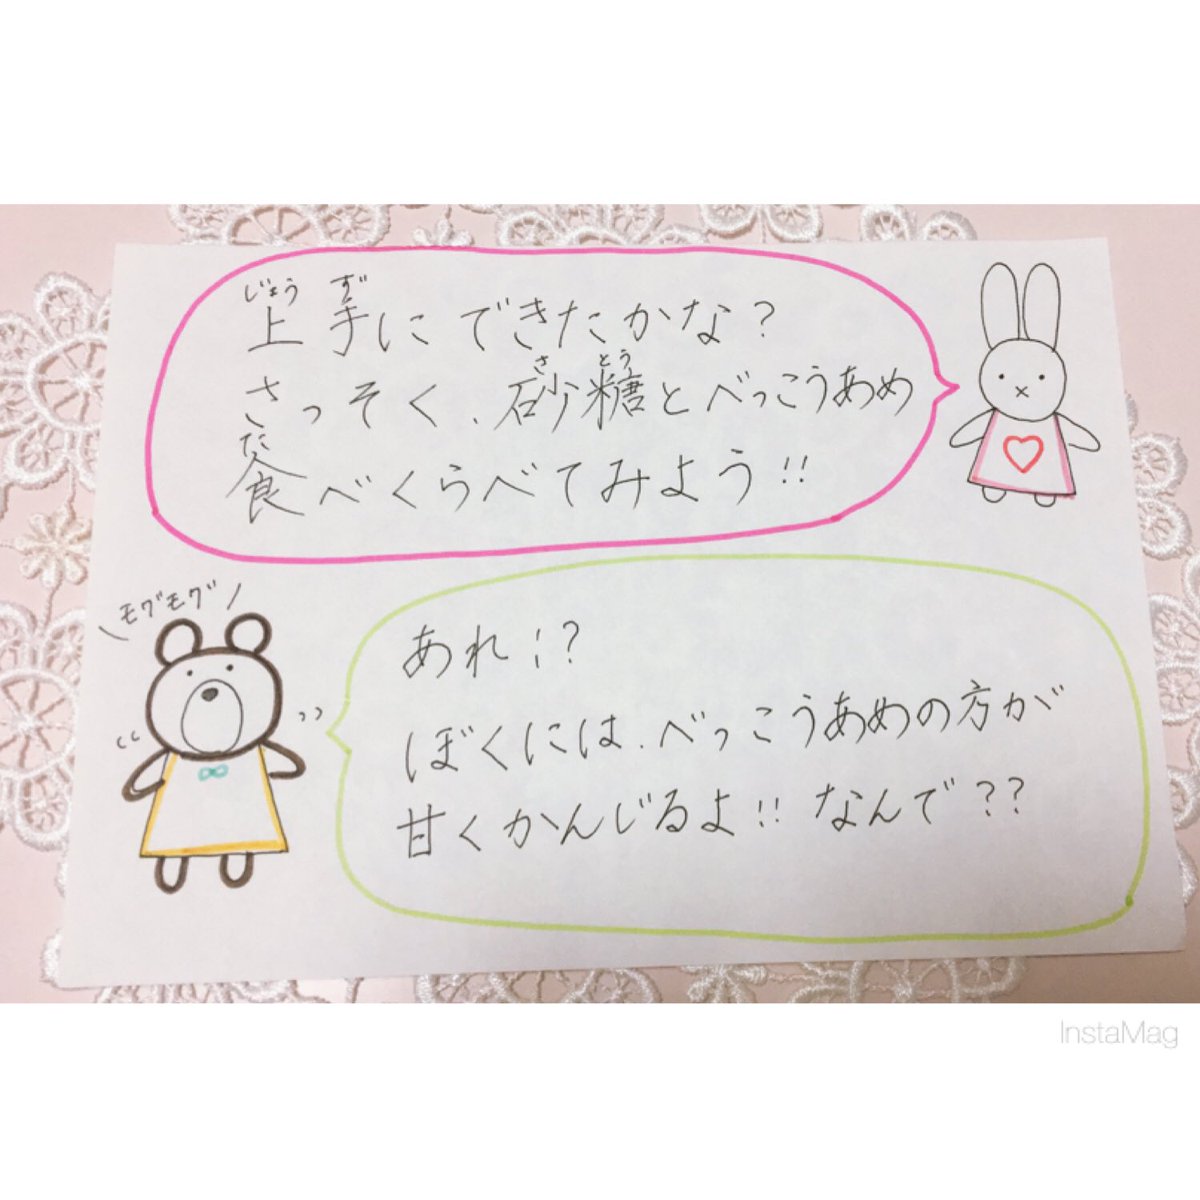 じょう ず
上手にできたかな?
さ とう
さっそく、砂糖とべっこうあめ
た
食べくらべてみよう!!
モグモグ
あれ!?
ぼくには、べっこうあめの方が
甘くかんじるよ!! なんで??
InstaMag